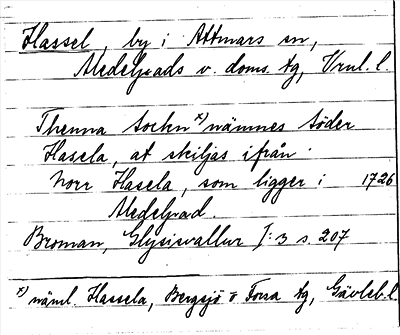 Hassel, by i Attmars sn,
Medelpads v. doms. tg, Vrnl. l.
Thenna Sockn x) nämnes Söder
Hasela, at skiljas ifrån
Norr Hasela, som ligger i 1726
Medelpad.
Broman, Glysisvallur I: 3 s. 207
x) näml. Hassela, Bergsjö o Forsa tg, Gävleb. l.